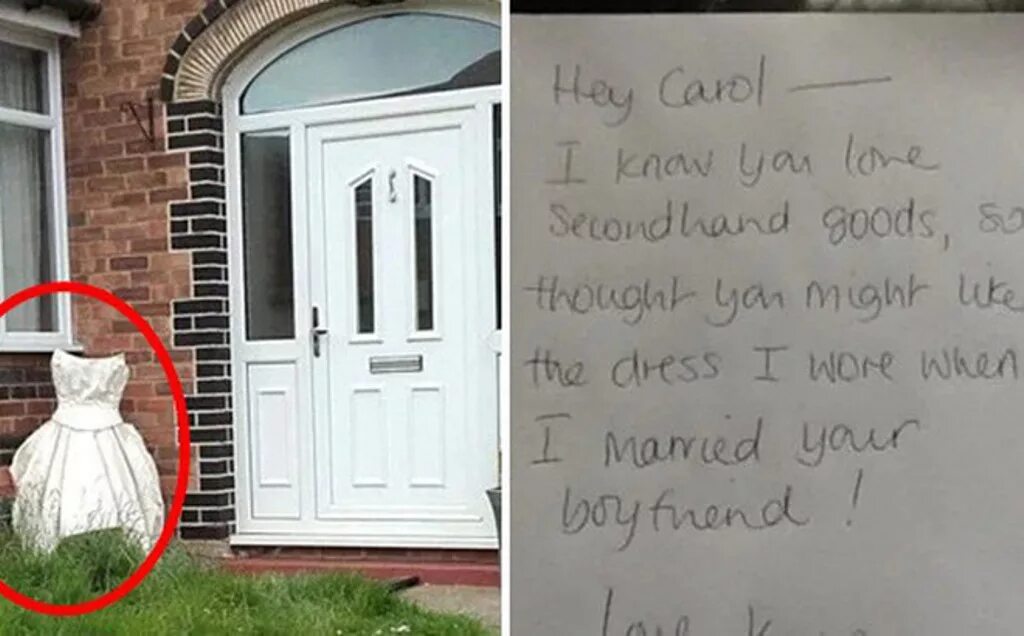 Hey Carol —
I know you love
secondhand goods, so
thought you might like
the dress I wore when
I married your
boyfriend!
love